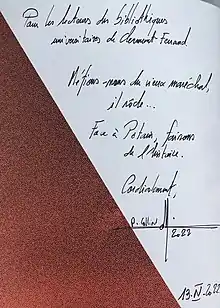 Pour les lecteurs des bibliothèques
universitaires de Clermont Ferrand
Méfions-nous du vieux maréchal,
il rôde...
Face à Pétain, faisons
de l'histoire.
Cordialement,
2022
13.IV.2022